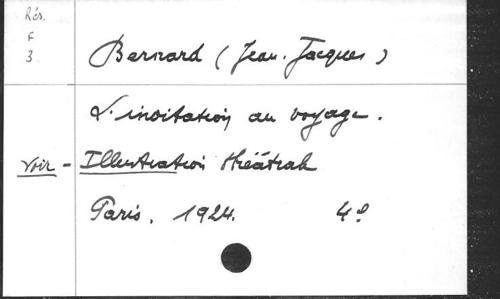 Rés.
F
3
Bernard (Jean-Jacques)
L'invitation au voyage.
Voir - Illustration théâtrale
Paris. 1924. 4º